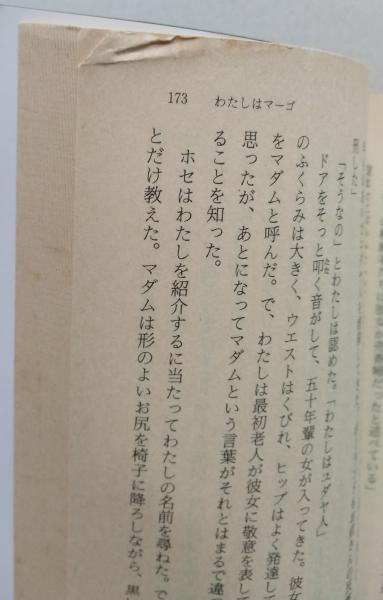 173 わたしはマーゴ
形した」
「そうなの」とわたしは認めた。「わたしはユダヤ人」
ドアをそっと叩く音がして、五十年輩の女が入ってきた。彼女
のふくらみは大きく、ウエストはくびれ、ヒップはよく発達して
をマダムと呼んだ。で、わたしは最初老人が彼女に敬意を表して
思ったが、あとになってマダムという言葉がそれとはまるで違
ることを知った。
ホセはわたしを紹介するに当たってわたしの名前を尋ねた。で
とだけ教えた。マダムは形のよいお尻を椅子に降ろしながら、黒